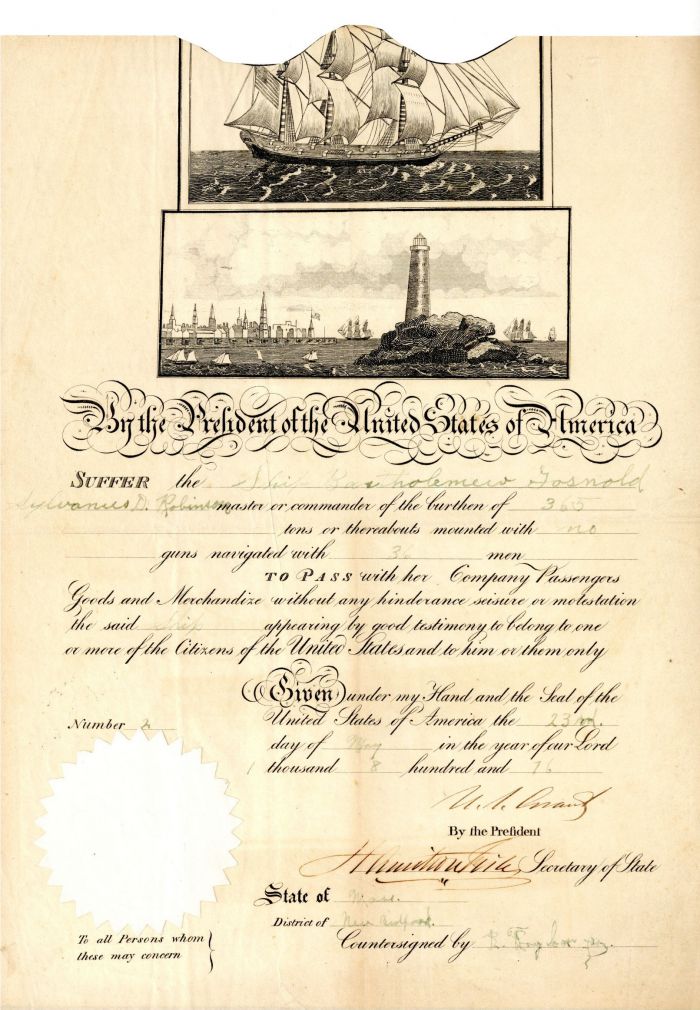 By the President of the United States of America
SUFFER the Ship Bartholemew Gosnold
Sylvanus D. Robinson master or commander of the burthen of 365
tons or thereabouts mounted with no
guns navigated with 36 men
TO PASS with her Company Passengers
Goods and Merchandize without any hinderance seisure or molestation
the said Ship appearing by good testimony to belong to one
or more of the Citizens of the United States and to him or them only
Given under my Hand and the Seal of the
United States of America the 23rd.
Number 2
day of May in the year of our Lord
1 thousand 8 hundred and 76
U. S. Grant
By the Preſident
Hamilton Fish Secretary of State
State of Mass.
District of New Bedford.
To all Persons whom
these may concern
Countersigned by